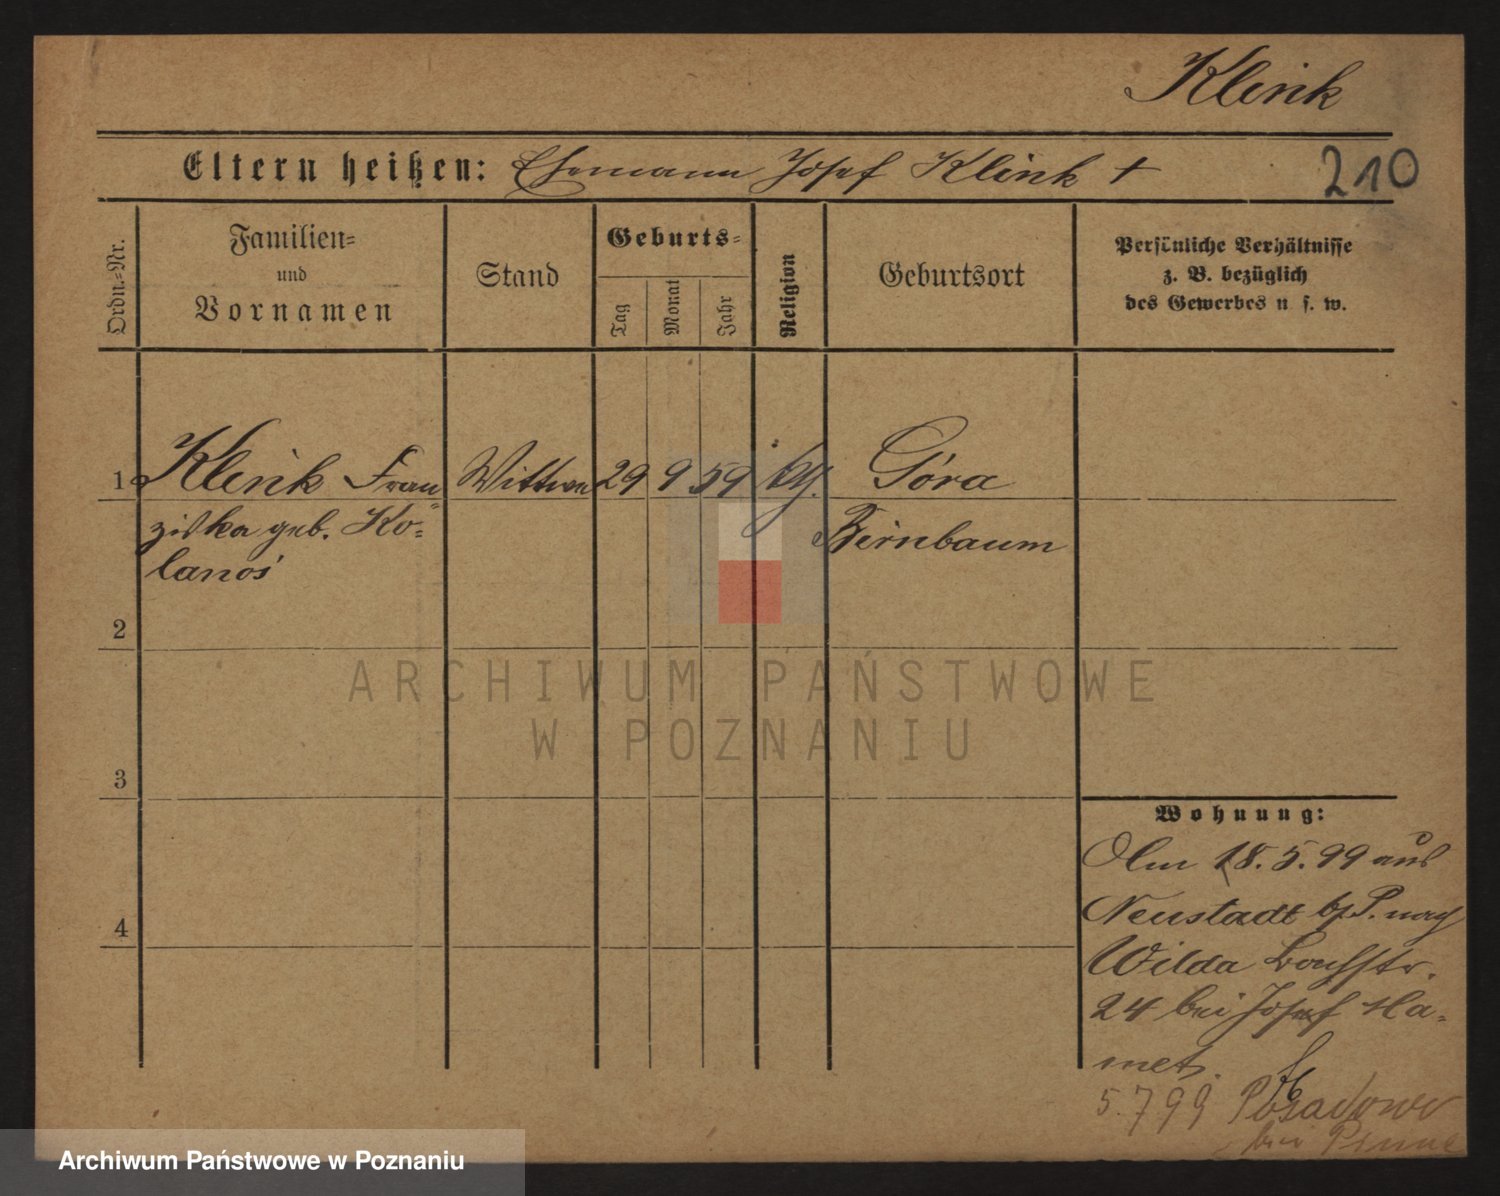 Klink
Eltern heißen: Ehemann Josef Klink +
210
Ordn.-Nr.
Familien-
und
Vornamen
Stand
Geburts-
Tag
Monat
Jahr
Religion
Geburtsort
Persönliche Verhältnisse
z. B. bezüglich
des Gewerbes u. s. w.
1 Klink Fran= Wittwe 29 9 59 kth. Góra
ziska geb. Ko= Birnbaum
lanoś
2
ARCHIWUM PAŃSTWOWE
W POZNANIU
3
4
Wohnung:
Am 18. 5. 99 aus
Neustadt b/P. nach
Wilda Bachstr.
24 bei Josef
5. 7 99 Posadowo
bei Pinne
Archiwum Państwowe w Poznaniu